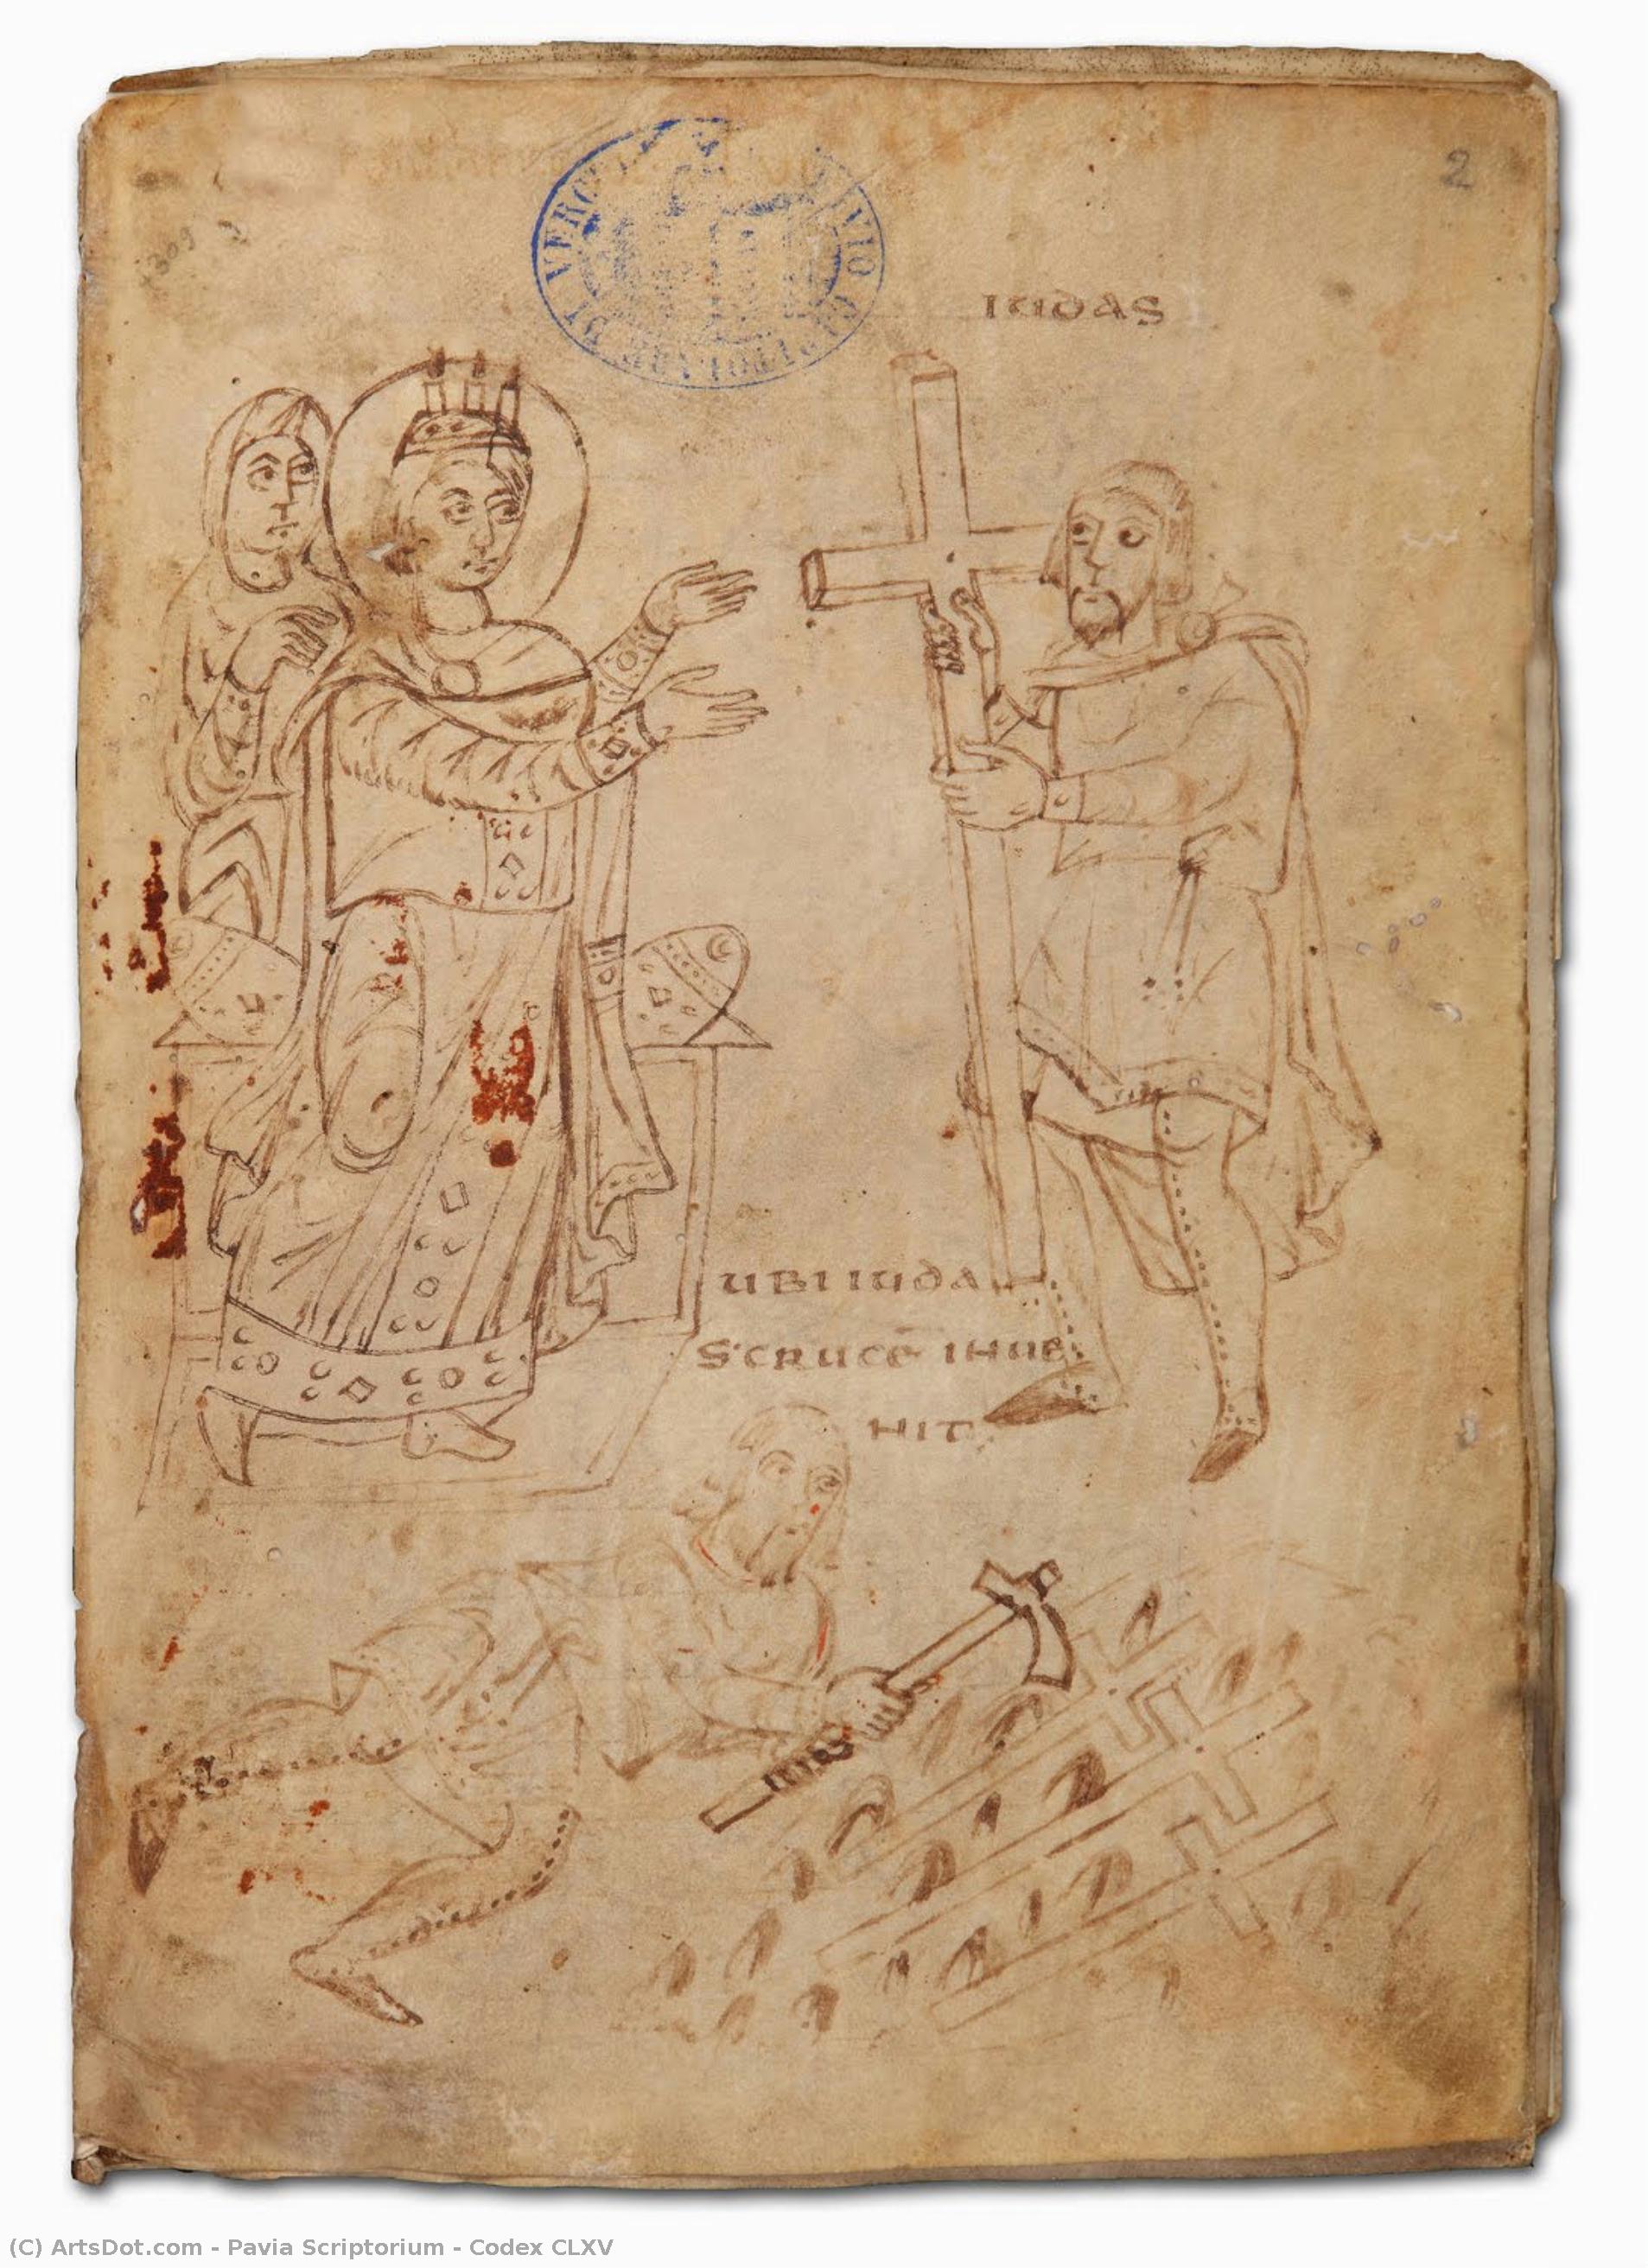 2
IUDAS
UBI IUDA
S CRUCĒ INUE
NIT
(C) ArtsDot.com - Pavia Scriptorium - Codex CLXV